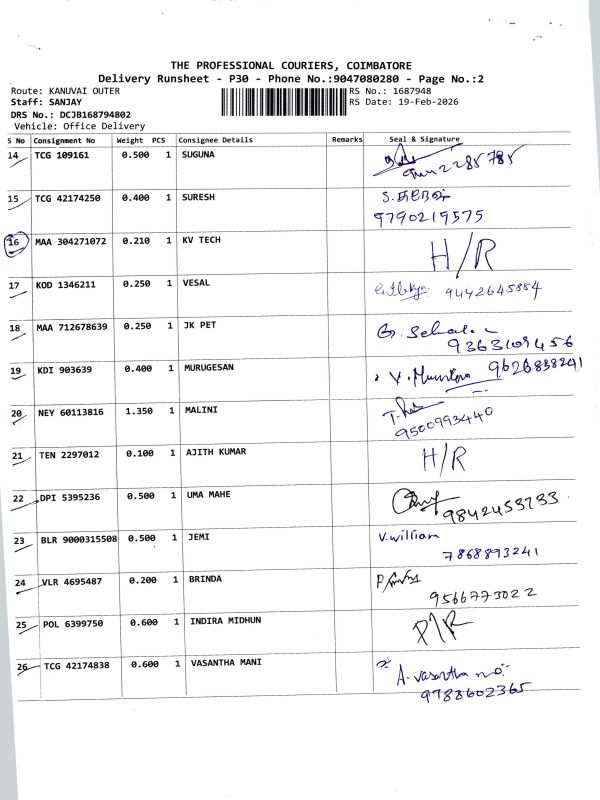 THE PROFESSIONAL COURIERS, COIMBATORE
Delivery Runsheet - P30 - Phone No.:9047080280 - Page No.:2
Route: KANUVAI OUTER
RS No.: 1687948
Staff: SANJAY
RS Date: 19-Feb-2026
DRS No.: DCJB168794802
Vehicle: Office Delivery
S No Consignment No Weight PCS Consignee Details Remarks Seal & Signature
14 TCG 109161 0.500 1 SUGUNA
15 TCG 42174250 0.400 1 SURESH S. சுரேஷ்
9790219575
16 MAA 304271072 0.210 1 KV TECH H/R
17 KOD 1346211 0.250 1 VESAL 9442645884
18 MAA 712678639 0.250 1 JK PET G.
9363109456
19 KDI 903639 0.400 1 MURUGESAN 9626838241
20 NEY 60113816 1.350 1 MALINI
9500993440
21 TEN 2297012 0.100 1 AJITH KUMAR H/R
22 DPI 5395236 0.500 1 UMA MAHE
9842453733
23 BLR 9000315508 0.500 1 JEMI V.william
7868893241
24 VLR 4695487 0.200 1 BRINDA
9566773022
25 POL 6399750 0.600 1 INDIRA MIDHUN P/R
26 TCG 42174838 0.600 1 VASANTHA MANI A. vasantha
9788602365